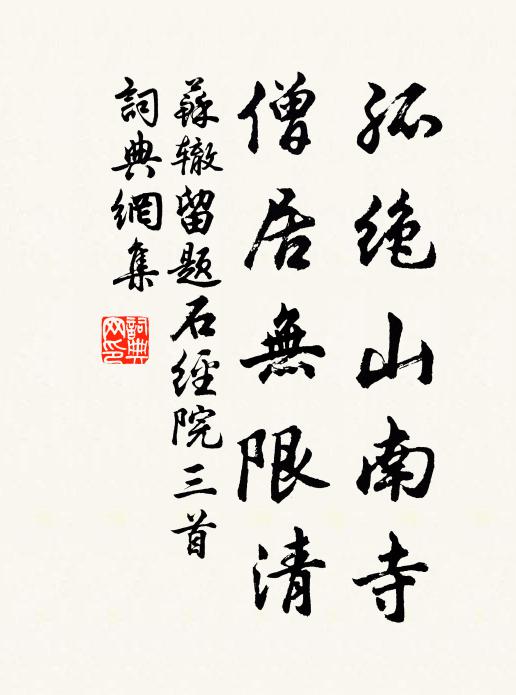 孤絶山南寺
僧居無限清
蘇轍留題石經院三首
詞典網集
詞典网印